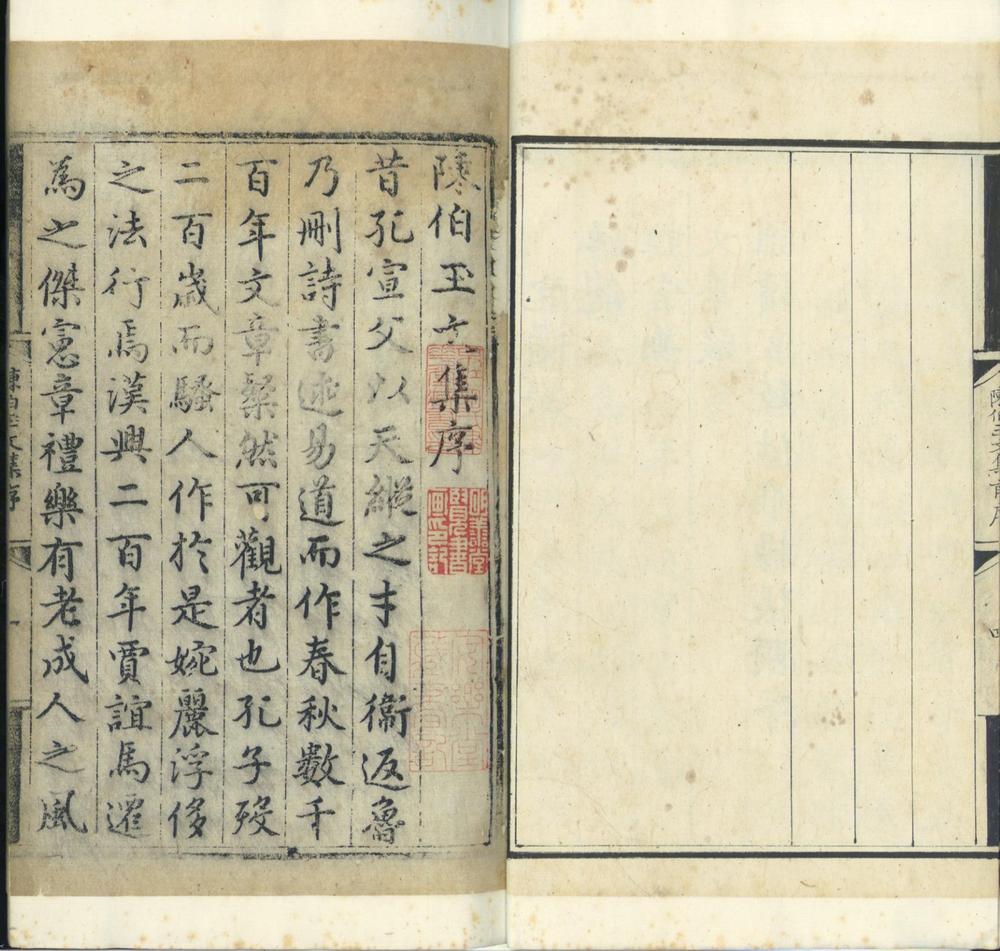 陳伯玉文集序
昔孔宣父以天縱之才自衞返魯
乃刪詩書述易道而作春秋數千
百年文章粲然可觀者也孔子歿
二百歲而騷人作於是婉麗浮侈
之法行焉漢興二百年賈誼馬遷
為之傑憲章禮樂有老成人之風
陳伯玉文集序
明善堂
覽書
畫印記